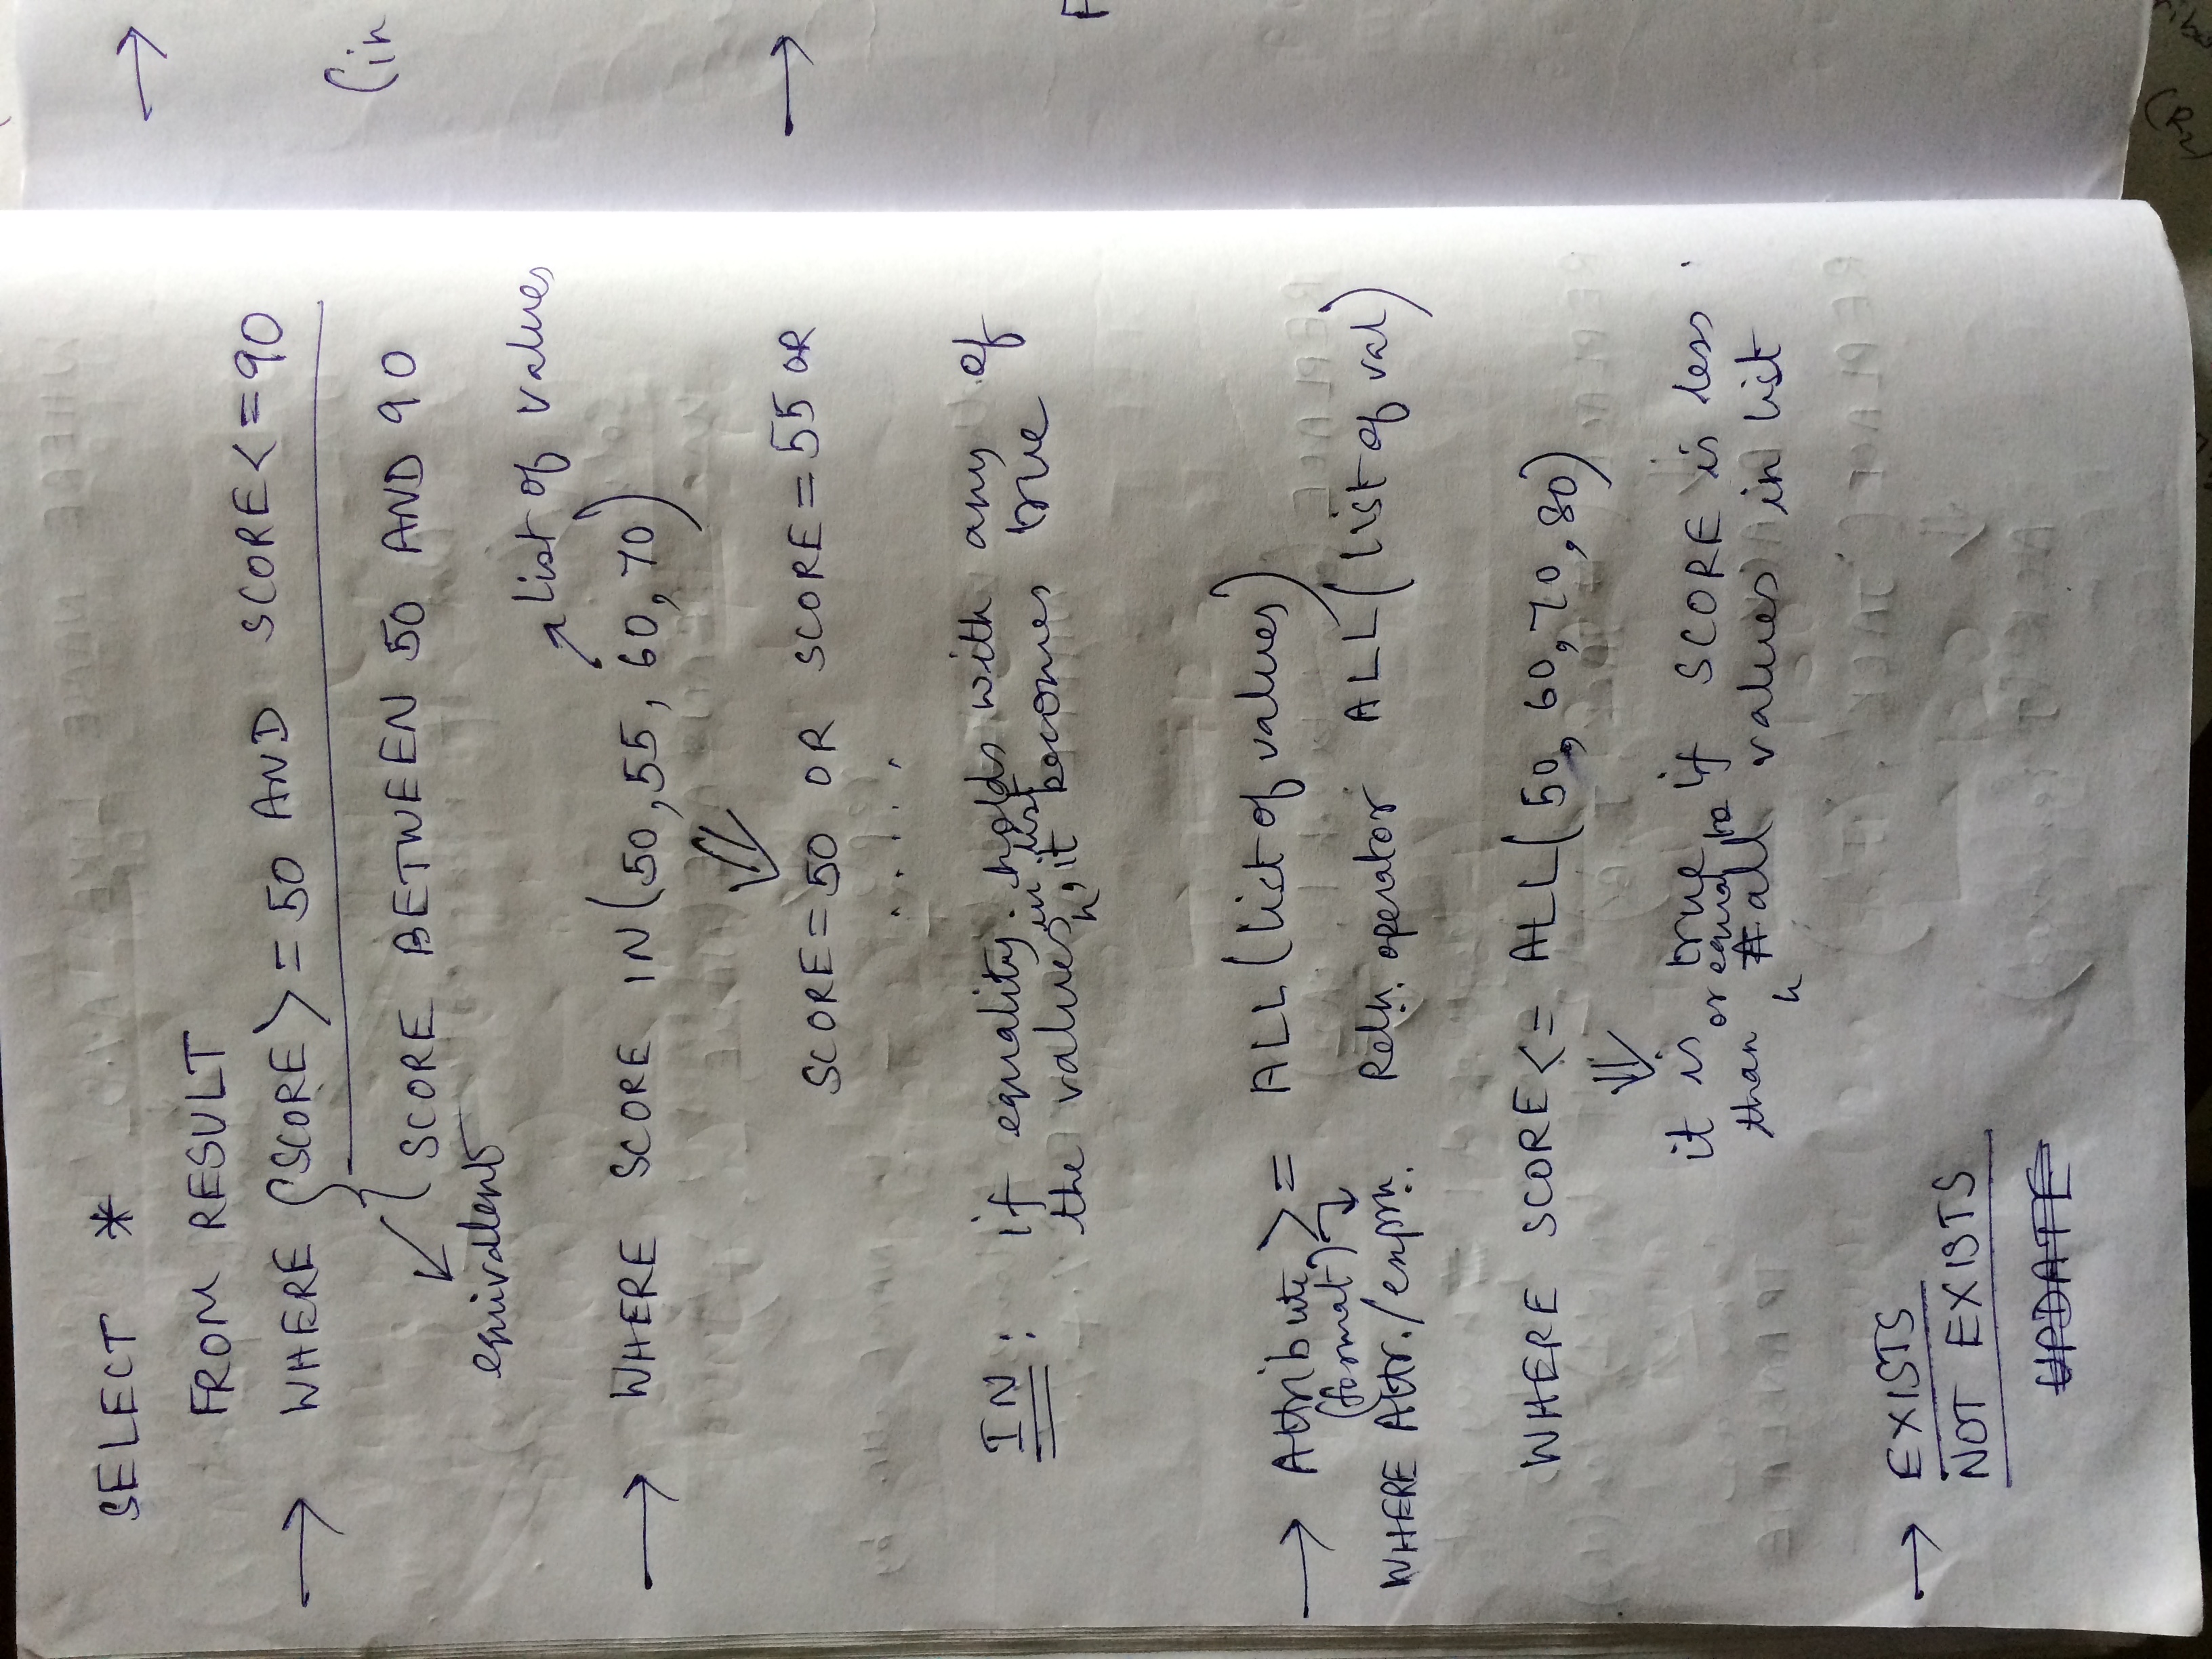 SELECT *
FROM RESULT
→ WHERE { SCORE >= 50 AND SCORE <= 90
SCORE BETWEEN 50 AND 90
equivalent
list of values
→ WHERE SCORE IN (50, 55, 60, 70)
⇓
SCORE = 50 OR SCORE = 55 OR
.....
IN : if equality holds with any of
the values in list, it becomes true
→ Attribute >= ALL (list of values)
(format)
WHERE Attr./expn. Reln. operator ALL (list of val)
WHERE SCORE <= ALL (50, 60, 70, 80)
⇓
it is true if SCORE is less
than or equal to all values in list
→ EXISTS
NOT EXISTS
UPDATE
→
(in
→
F